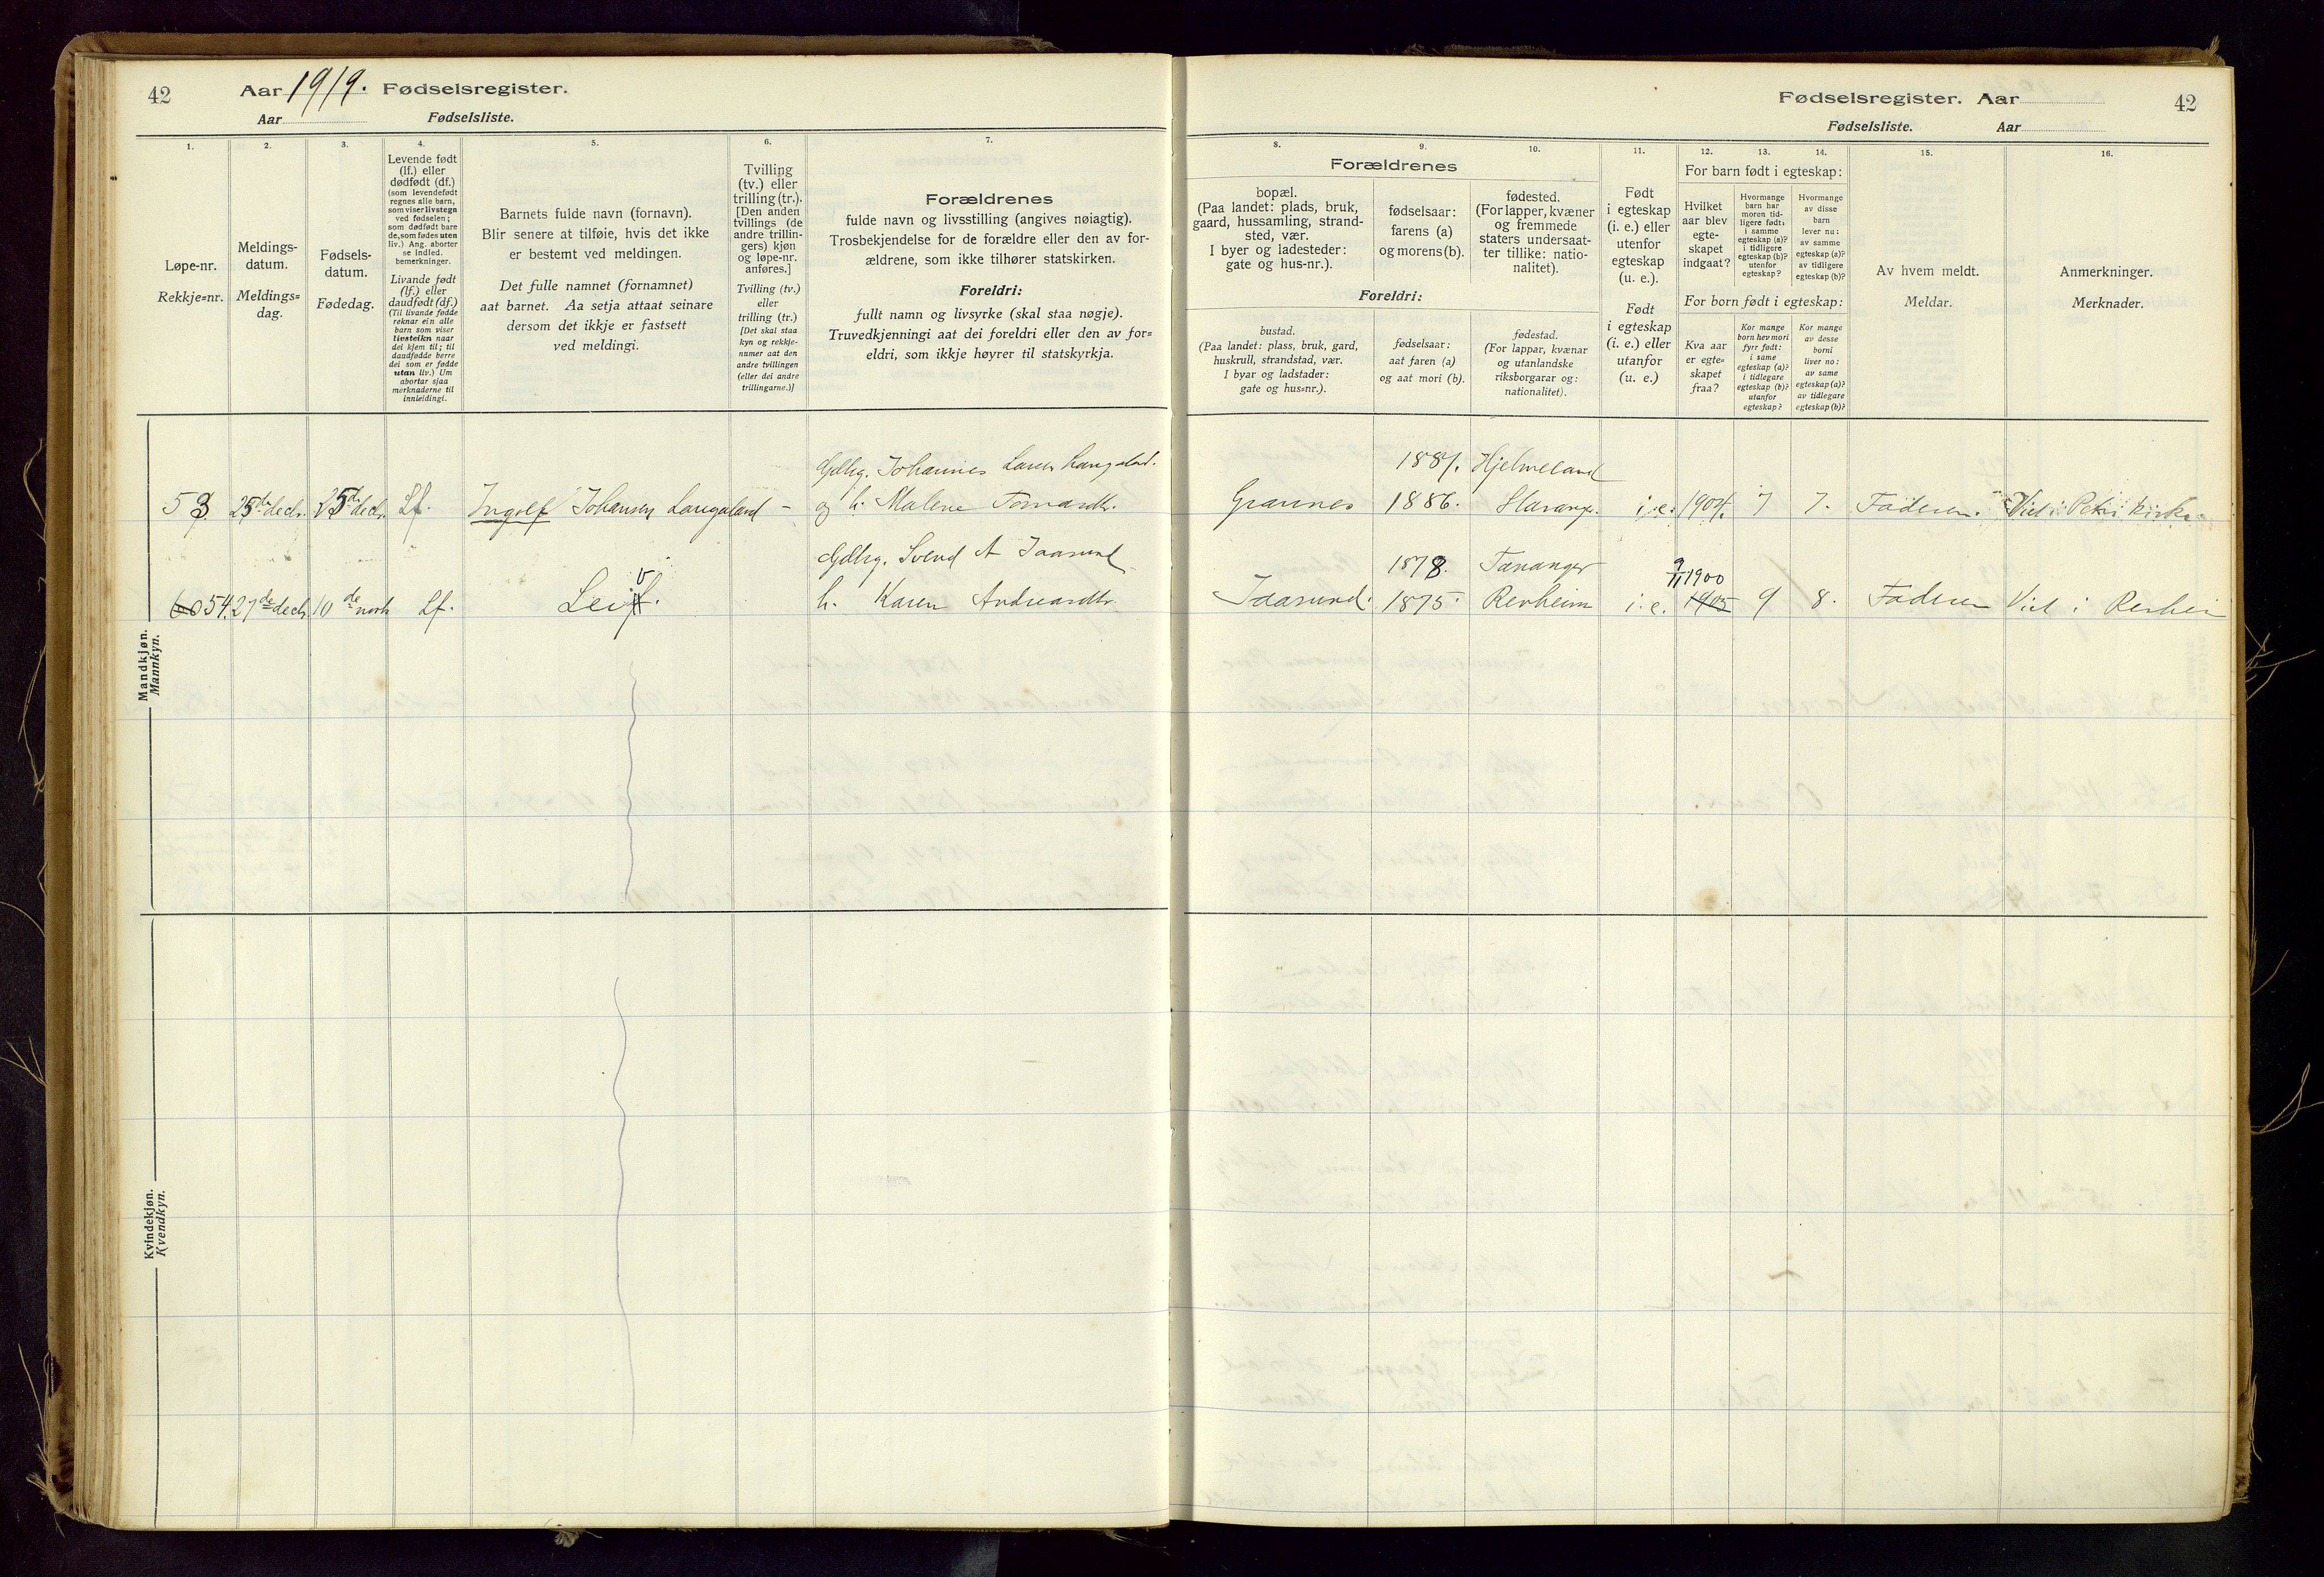 42 Aar 1919. Fødselsregister.
Aar Fødselsliste.
1.
Løpe-nr.
Rekkje=nr.
2.
Meldings-
datum.
Meldings=
dag.
3.
Fødsels-
datum.
Fødedag.
4.
Levende født
(lf.) eller
dødfødt (df.)
(som levendefødt
regnes alle barn,
som viser livstegn
ved fødselen;
som dødfødt bare
de, som fødes uten
liv.) Ang. aborter
se indled.
bemerkninger.
Livande født
(lf.) eller
daudfødt (df.)
(Til livande fødde
reknar ein alle
barn som viser
livsteikn naar
dei kjem til; til
daudfødde berre
dei som er fødde
utan liv.) Um
abortar sjaa
merknaderne til
innleidingi.
5.
Barnets fulde navn (fornavn).
Blir senere at tilføie, hvis det ikke
er bestemt ved meldingen.
Det fulle namnet (fornamnet)
aat barnet. Aa setja attaat seinare
dersom det ikkje er fastsett
ved meldingi.
6.
Tvilling
(tv.) eller
trilling (tr.).
[Den anden
tvillings (de
andre trillin-
gers) kjøn
og løpe-nr.
anføres.]
Tvilling (tv.)
eller
trilling (tr.)
[Det skal staa
kyn og rekkje-
numer aat den
andre tvillingen
(eller dei andre
trillingarne.)]
7.
Forældrenes
fulde navn og livsstilling (angives nøiagtig).
Trosbekjendelse for de forældre eller den av for-
ældrene, som ikke tilhører statskirken.
Foreldri:
fullt namn og livsyrke (skal staa nøgje).
Truvedkjenningi aat dei foreldri eller den av for=
eldri, som ikkje høyrer til statskyrkja.
Gdbg. Johannes Larsen Langeland.
53. 25de decbr. 25de decbr. Lf. Ingolf Johansen Langeland - og h.
Gdbg. Svend A Jaasund
60 54. 27de decbr. 10de novb Lf. Leif. v h. Karen Andreasdtr.
Mandkjøn.
Mannkyn.
Kvindekjøn.
Kvendkyn.
Fødselsregister. Aar 42
Fødselsliste. Aar
8. 9. 10.
Forældrenes
bopæl.
(Paa landet: plads, bruk,
gaard, hussamling, strand-
sted, vær.
I byer og ladesteder:
gate og hus-nr.).
fødselsaar:
farens (a)
og morens (b).
fødested.
(For lapper, kvæner
og fremmede
staters undersaat-
ter tillike: natio-
nalitet).
Foreldri:
bustad.
(Paa landet: plass, bruk, gard,
huskrull, strandstad, vær.
I byar og ladstader:
gate og hus=nr.).
fødselsaar:
aat faren (a)
og aat mori (b).
fødestad.
(For lappar, kvænar
og utanlandske
riksborgarar og:
nationalitet).
11.
Født
i egteskap
(i. e.) eller
utenfor
egteskap
(u. e.).
Født
i egteskap
(i. e.) eller
utanfor
(u. e.)
12. 13. 14.
For barn født i egteskap:
Hvilket
aar blev
egte-
skapet
indgaat?
Hvormange
barn har
moren tid-
ligere født:
i samme
egteskap (a)?
i tidligere
egteskap (b)?
utenfor
egteskap?
Hvormange
av disse
barn
lever nu:
av samme
egteskap (a)?
av tidligere
egteskap (b)?
For born født i egteskap:
Kva aar
er egte=
skapet
fraa?
Kor mange
born hev mori
fyrr født:
i same
egteskap (a)?
i tidlegare
egteskap (b)?
utanfor
egteskap?
Kor mange
av desse
borni
liver no:
av same
egteskap (a)?
av tidlegare
egteskap (b)?
15.
Av hvem meldt.
Meldar.
16.
Anmerkninger.
Merknader.
1887. Hjelmeland
Grannes 1886. Stavanger. i.e. 1904. 7 7. Faderen. Viet i Petri kirke
1878. Tananger 9/11 1900
Jaasund. 1875. Revheim i.e. 1905 9 8. Faderen Viet i Revheim